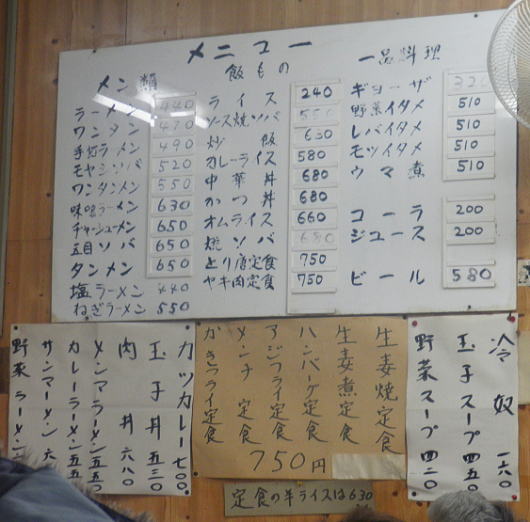 メニュー
メン類
ラーメン 440
ワンタン 470
手打ラーメン 490
モヤシソバ 520
ワンタンメン 550
味噌ラーメン 630
チャーシューメン 650
五目ソバ 650
タンメン 650
塩ラーメン 440
ねぎラーメン 550
飯もの
ライス 240
ソース焼ソバ 550
炒飯 630
カレーライス 580
中華丼 680
かつ丼 680
オムライス 660
焼ソバ 680
とり唐定食 750
ヤキ肉定食 750
一品料理
ギョーザ 320
野菜イタメ 510
レバイタメ 510
モツイタメ 510
ウマ煮 510
コーラ 200
ジュース 200
ビール 580
冷奴 一六〇
玉子スープ 四五〇
野菜スープ 四二〇
生姜焼定食
生姜煮定食
ハンバーグ定食
アジフライ定食
メンチ定食
かきフライ定食
750円
カツカレー 七〇〇
玉子丼 五三〇
肉丼 六八〇
メンマラーメン 五五〇
カレーラーメン 五五
サンマーメン 六
野菜ラーメン
定食の半ライスは630